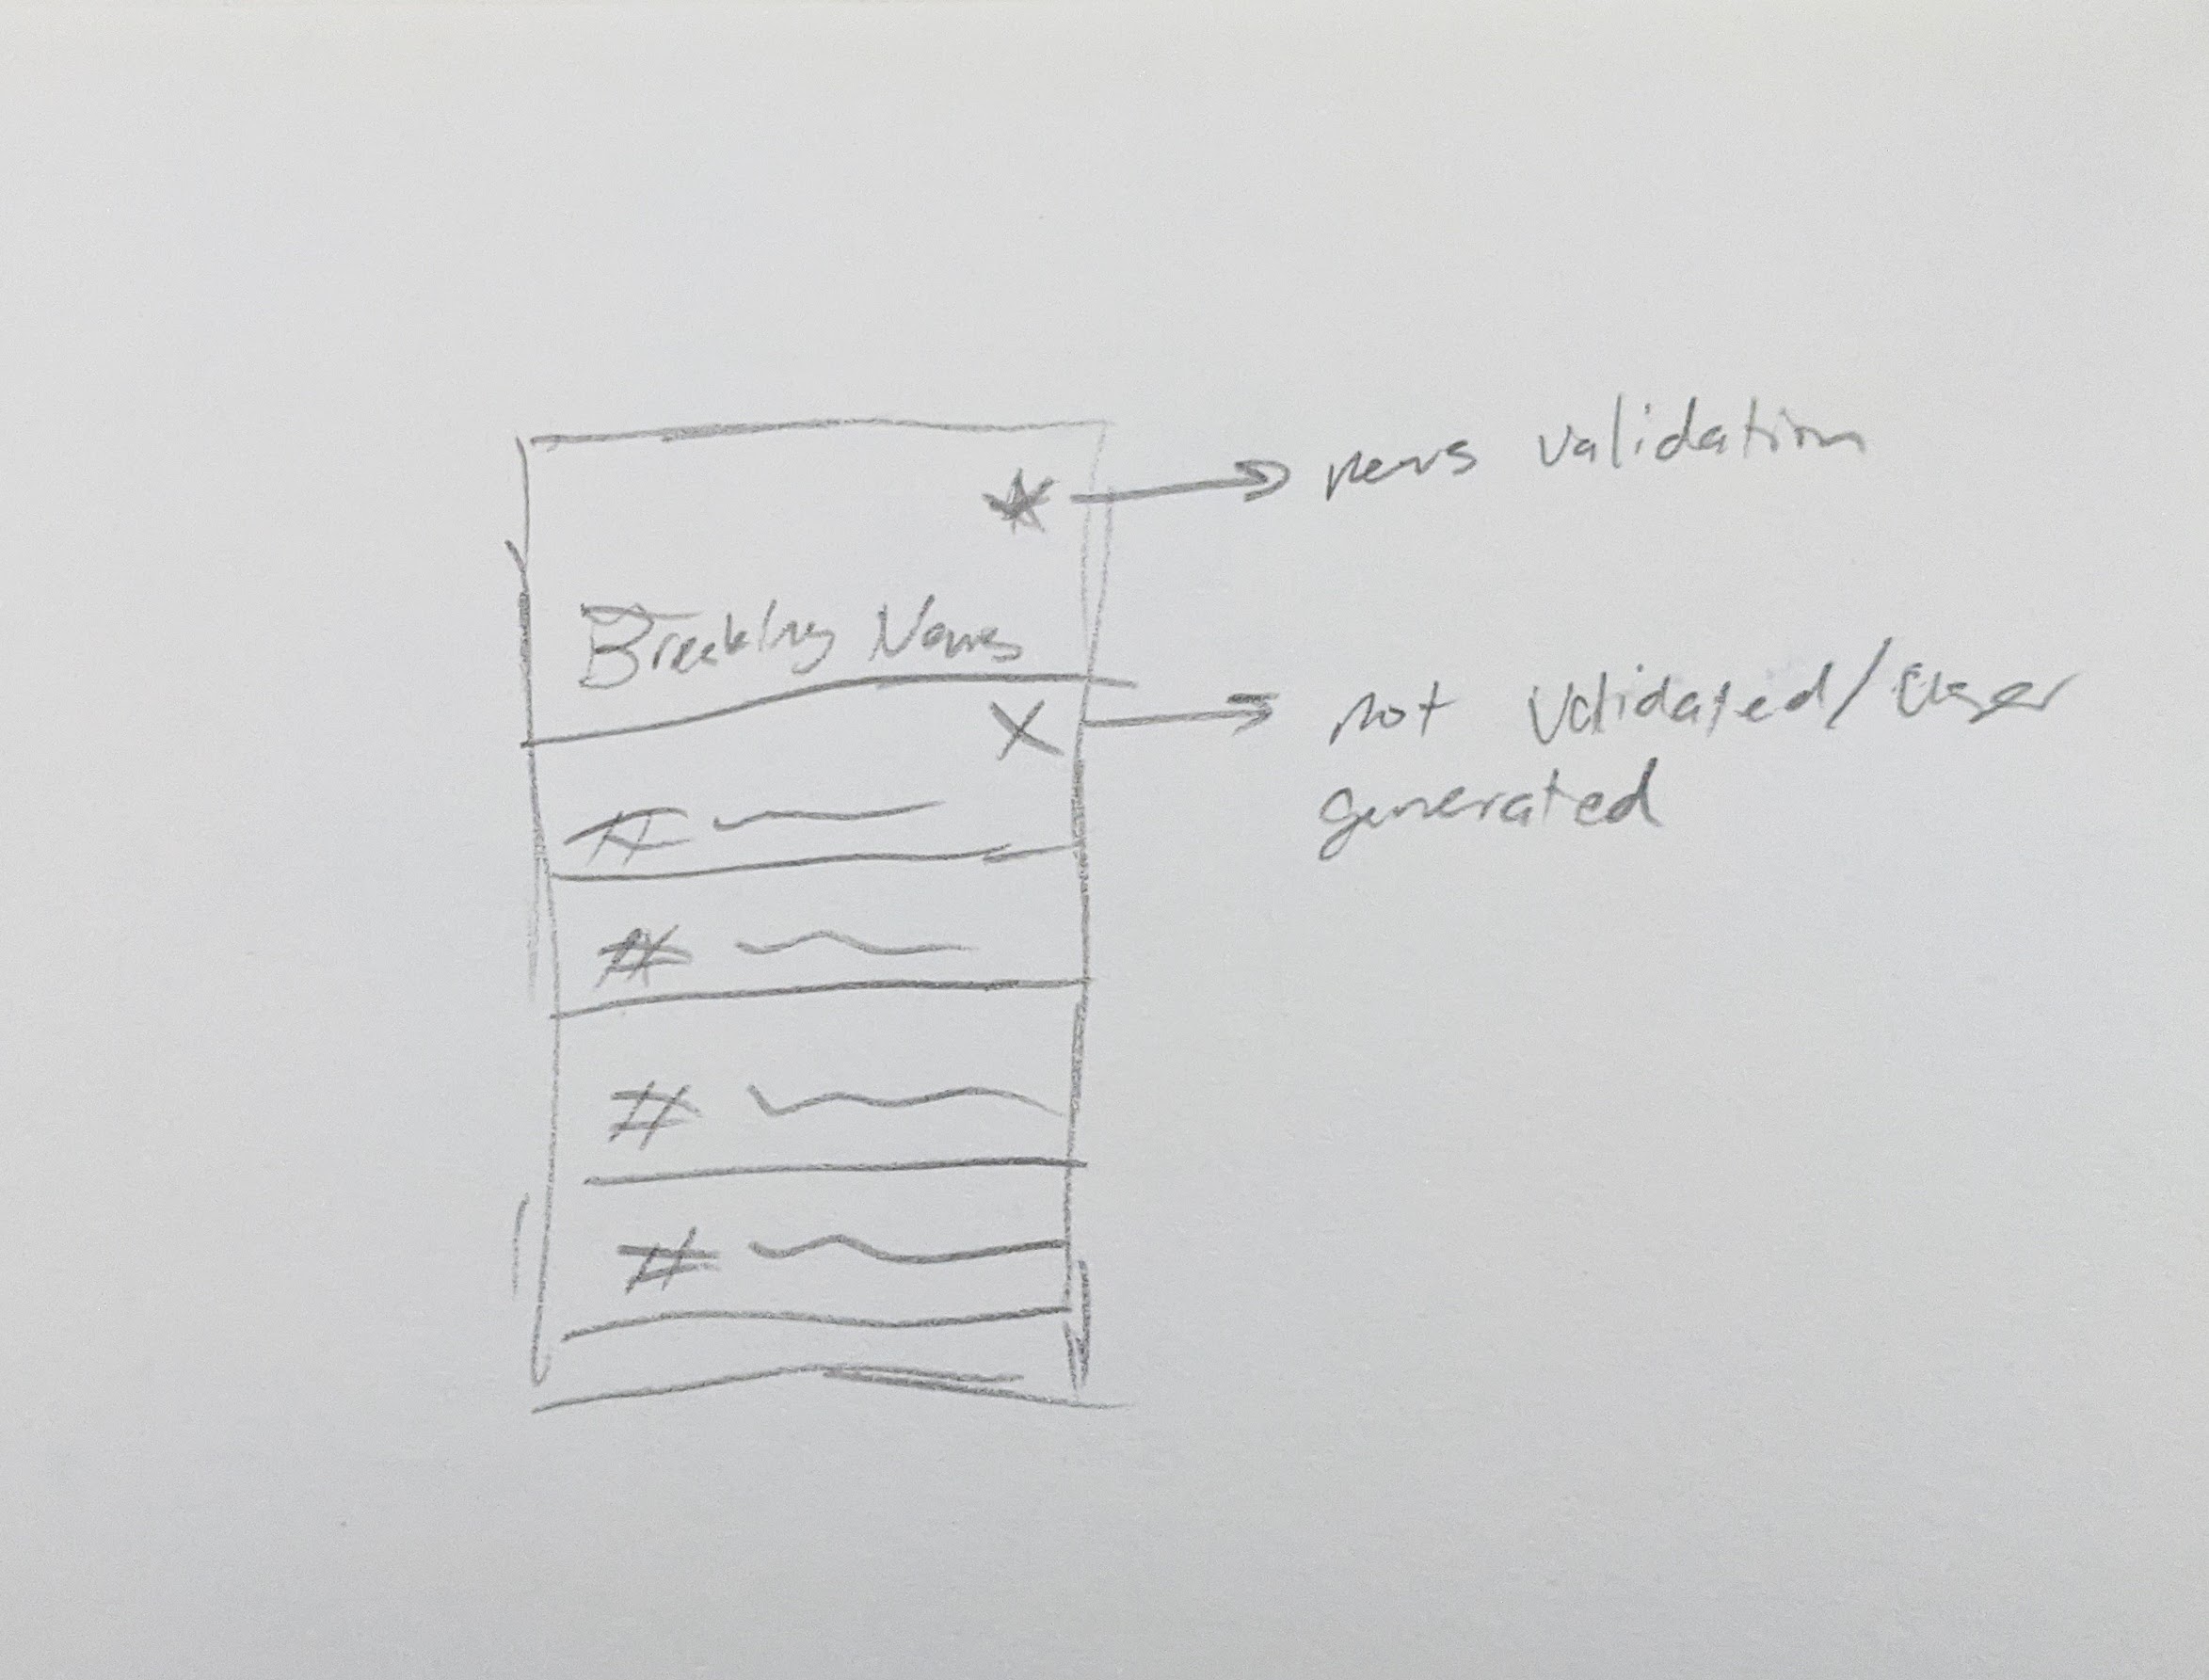 news validation
Breaking News
X
not validated/user
generated
#
#
#
#